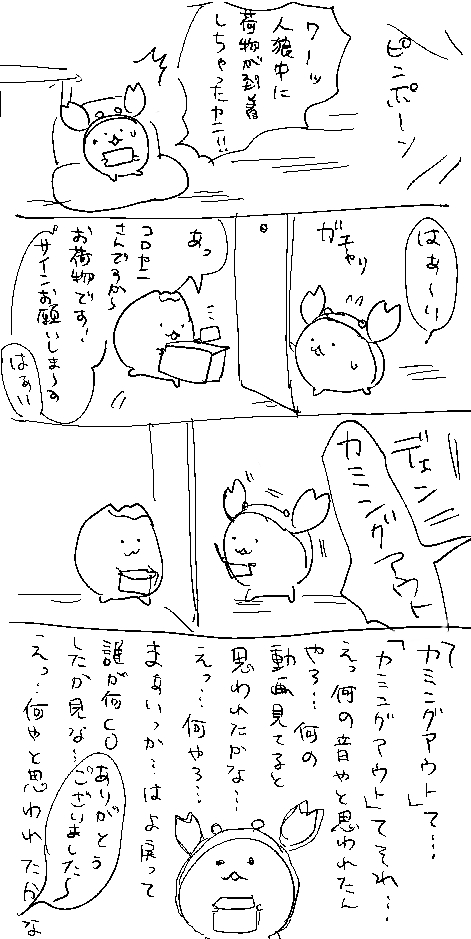 ピンポーン
ワーッ
人狼中に
荷物が到着
しちゃったカニ!!
はぁ〜い
ガチャリ
あっ
コロセニ
さんですか〜
お荷物です!
サインお願いしま〜す
はぁい
デェン
カミングアウト
「カミングアウト」て…
「カミングアウト」てそれ…
えっ何の音やと思われたん
やろ…何の
動画見てると
思われたかな…
えっ…何やろ…
まあいっか…はよ戻って
誰が何CO
したか見な…
ありがとう
ございました〜
えっ…何やと思われたかな